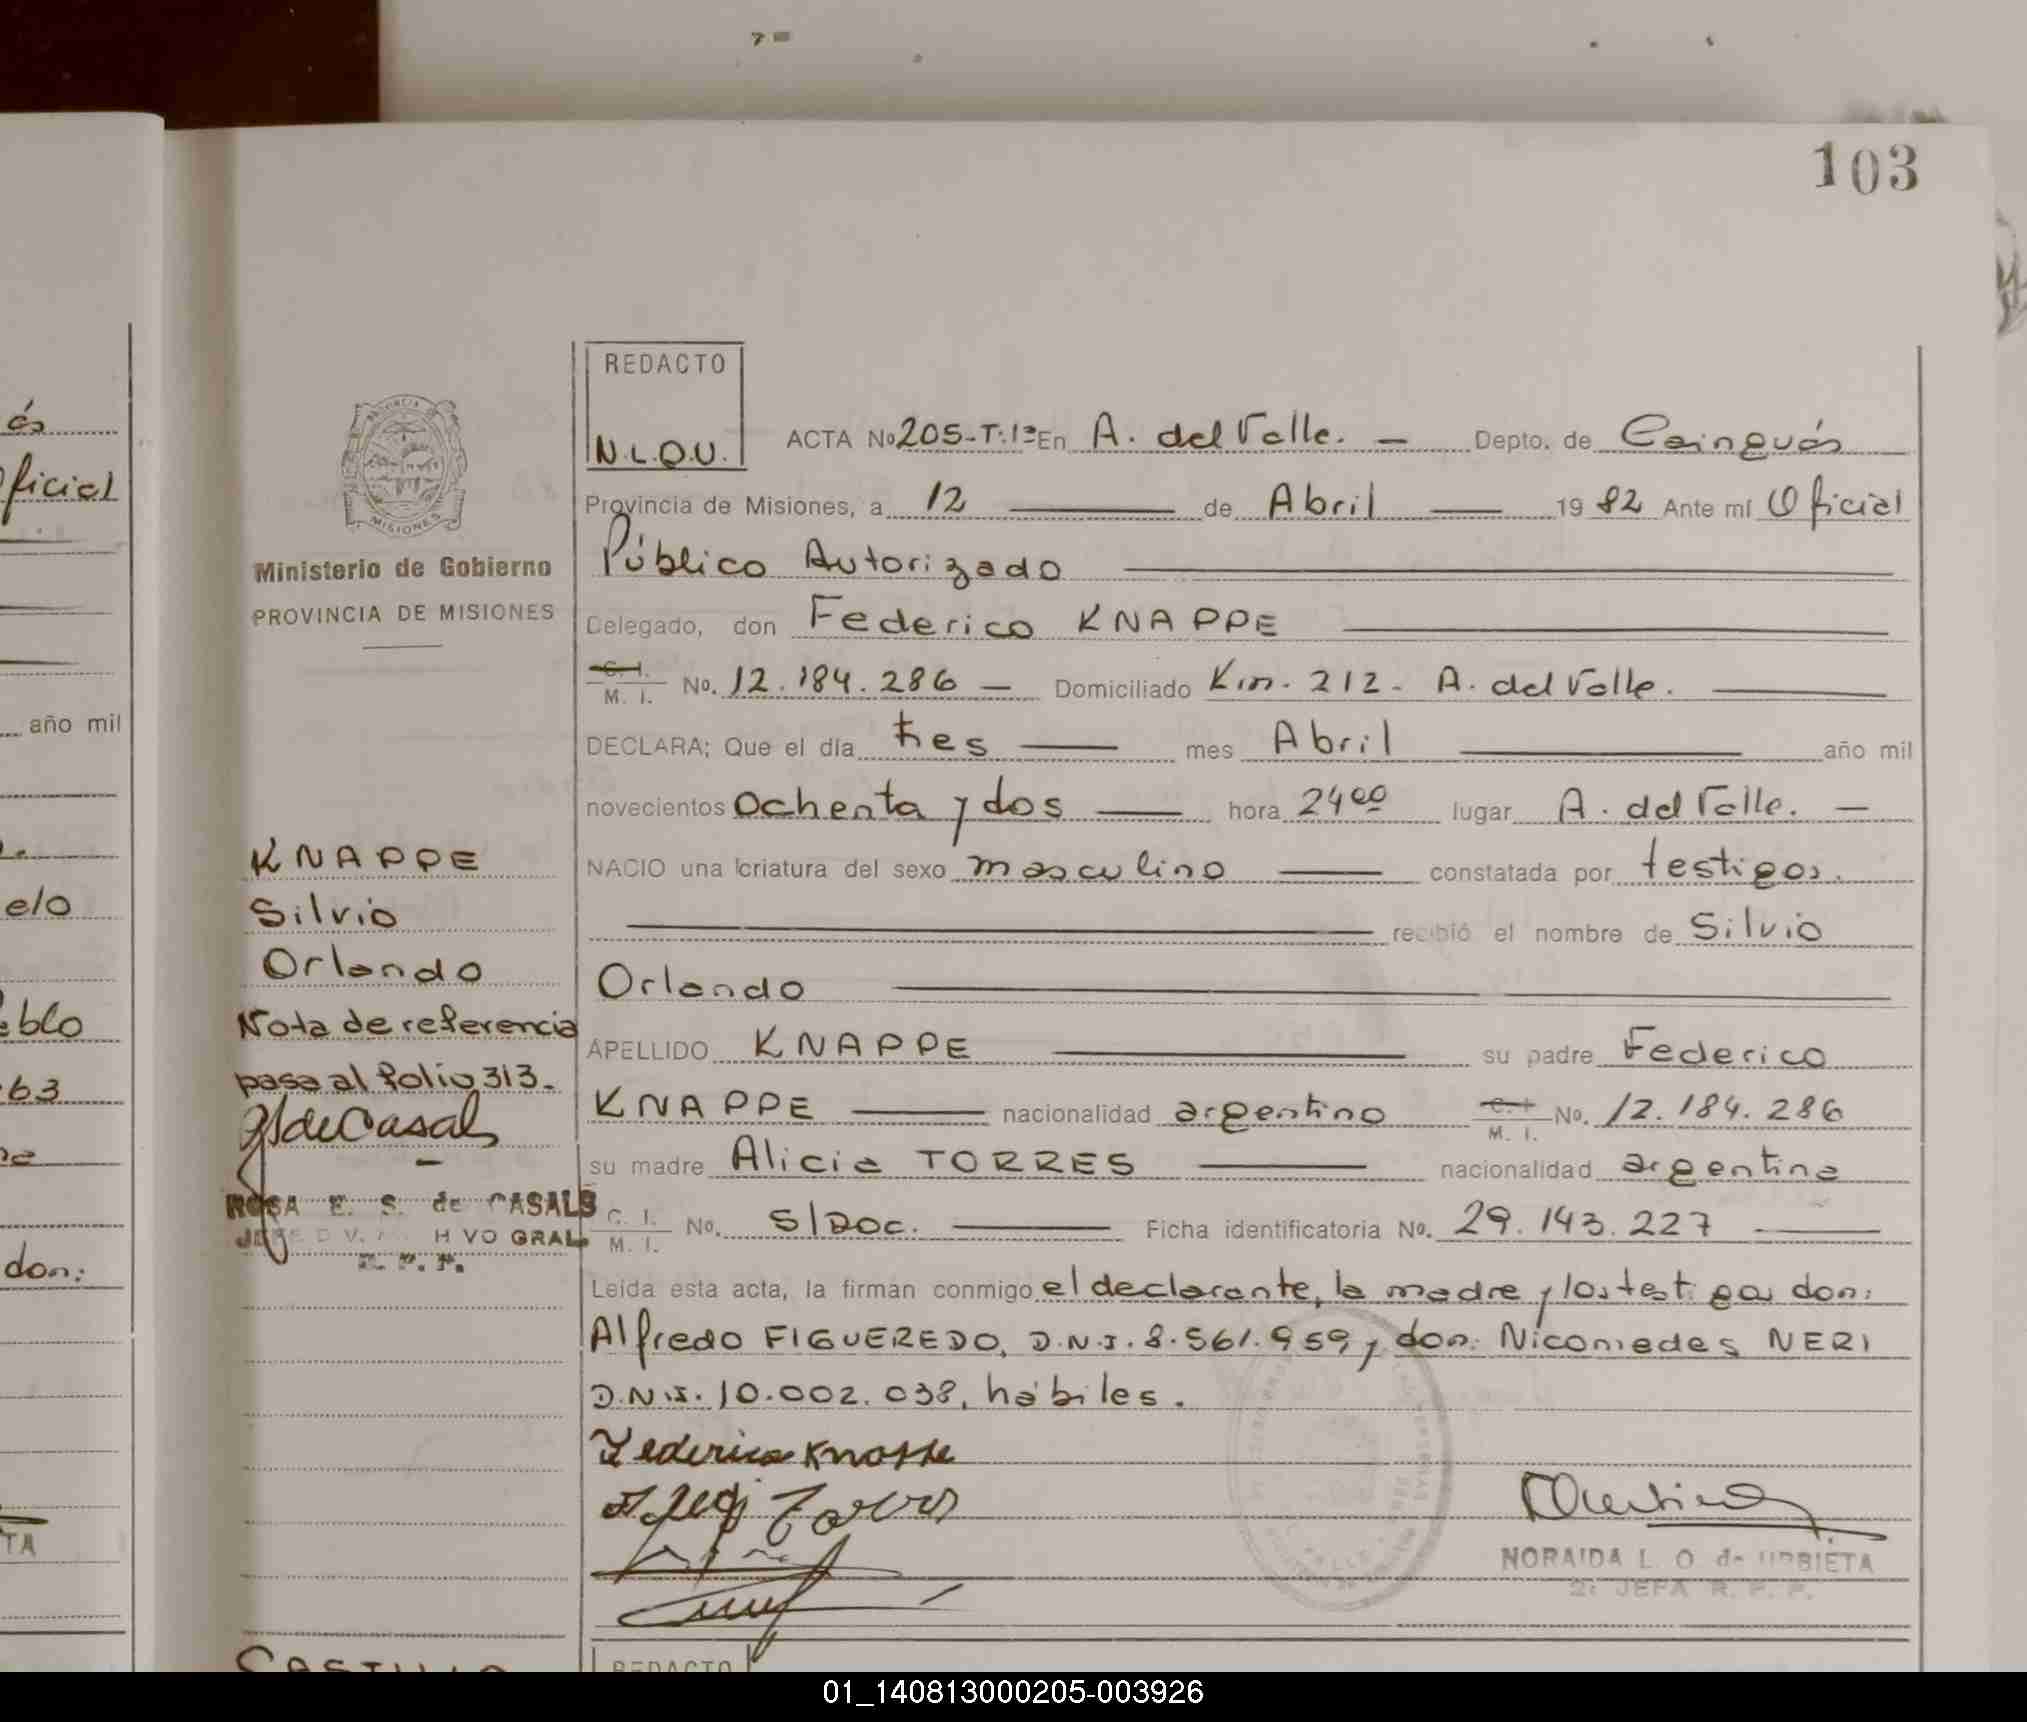 103
REDACTO
N.L.O.U.
ACTA No 205-T:1º En A. del Valle. — Depto. de Cainguás
Provincia de Misiones, a 12 — de Abril — 1982 Ante mí Oficial
Público Autorizado
Delegado, don Federico KNAPPE
C. I. M. I. No. 12.184.286 — Domiciliado Km. 212 - A. del Valle.
DECLARA; Que el día tres — mes Abril — año mil
novecientos ochenta y dos — hora 24 00 lugar A. del Valle. —
NACIO una criatura del sexo masculino — constatada por testigos.
recibió el nombre de Silvio
Orlando
APELLIDO KNAPPE — su padre Federico
KNAPPE — nacionalidad argentino C. I. M. I. No. 12.184.286
su madre Alicia TORRES — nacionalidad argentina
C. I. M. I. No. S/Doc. — Ficha identificatoria No. 29.143.227 —
Leída esta acta, la firman conmigo el declarante, la madre y los testigos don:
Alfredo FIGUEREDO, D.N.I. 8.561.959 y don: Nicomedes NERI
D.N.I. 10.002.038, hábiles.
Federico Knappe
Torres
NORAIDA L. O. de URBIETA
2: JEFA R. P. P.
PROVINCIA
MISIONES
Ministerio de Gobierno
PROVINCIA DE MISIONES
KNAPPE
Silvio
Orlando
Nota de referencia
pasa al folio 313.
de Casals
ROSA E. S. de CASALS
JEFE DIV. HVO GRAL
R. P. P.
REDACTO
ás
Oficial
año mil
elo
63
don:
TA
01_140813000205-003926